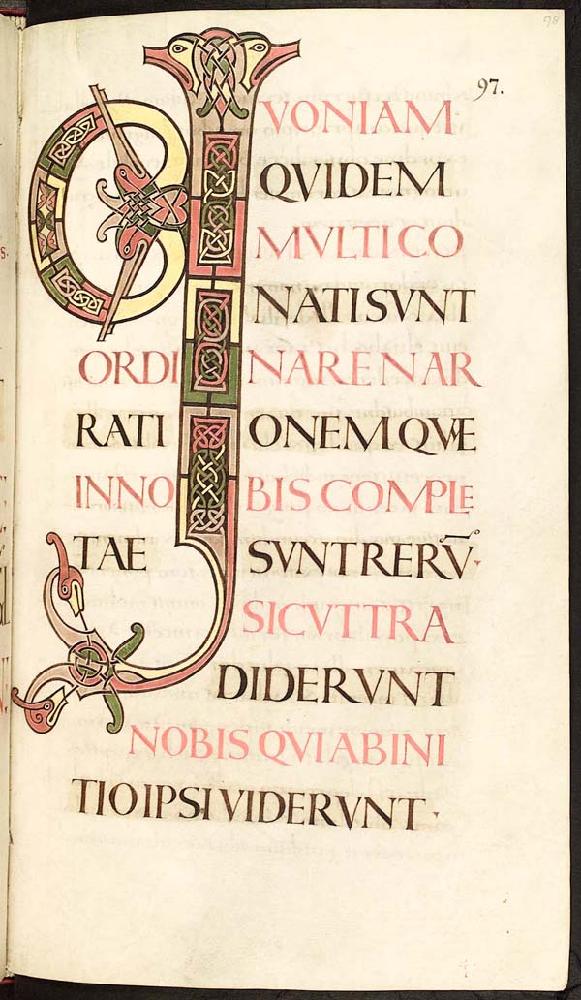 98
97.
QVONIAM
QVIDEM
MVLTICO
NATISVNT
ORDINARENAR
RATIONEMQVE
INNOBISCOMPLE
TAE SVNTRERV̅·
SICVTTRA
DIDERVNT
NOBISQVIABINI
TIOIPSIVIDERVNT·